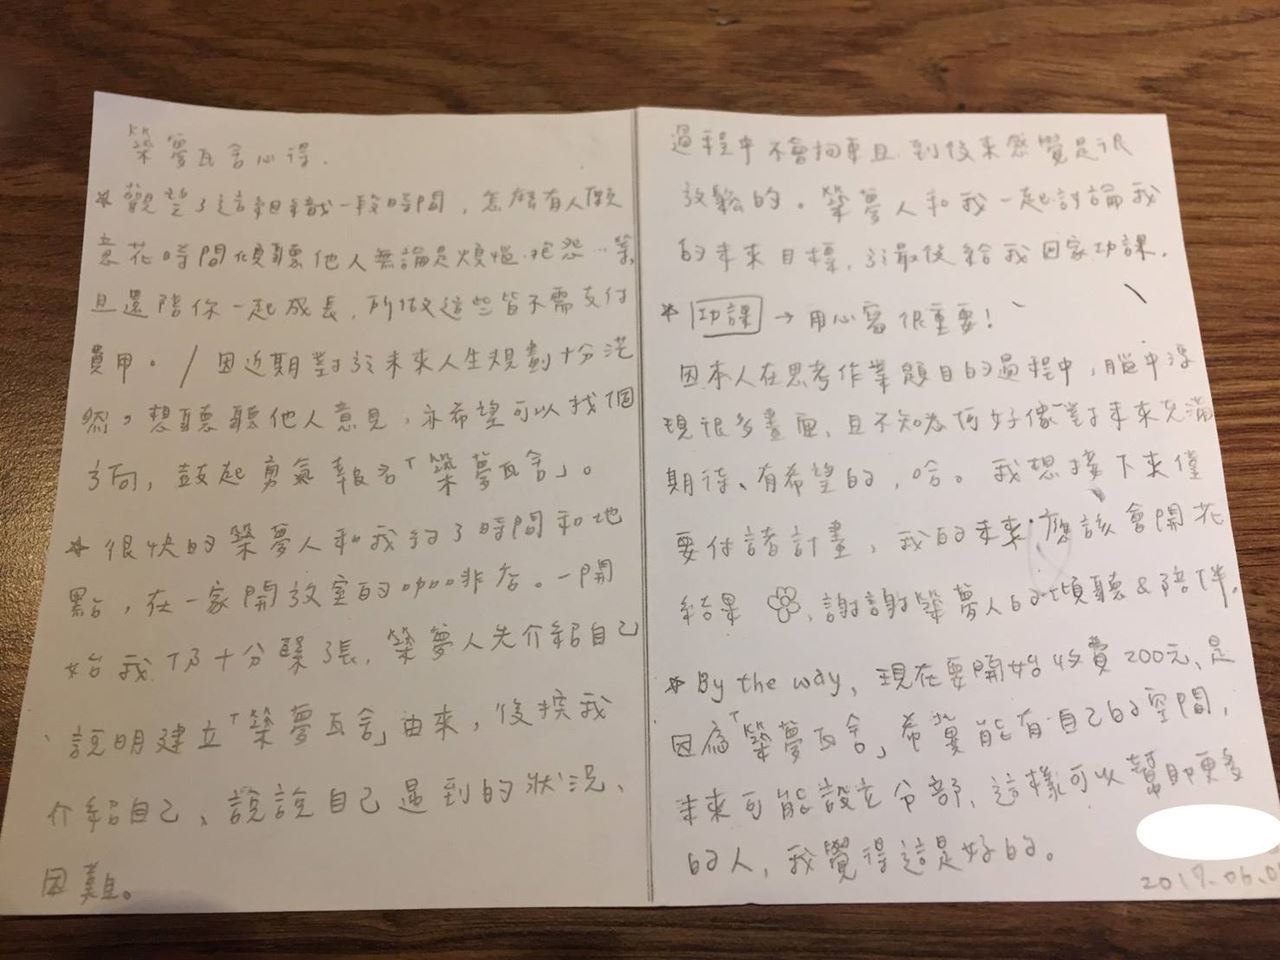 築夢瓦舍心得.
* 觀望了這組織一段時間，怎麼有人願
意花時間傾聽他人無論是煩惱、抱怨…等，
且還陪你一起成長，所做這些皆不需支付
費用。/ 因近期對於未來人生規劃十分茫
然，想聽聽他人意見，亦希望可以找個
方向，鼓起勇氣報名「築夢瓦舍」。
* 很快的築夢人和我約了時間和地
點，在一家開放室的咖啡店。一開
始我仍十分緊張，築夢人先介紹自己
說明建立「築夢瓦舍」由來，後換我
介紹自己、說說自己遇到的狀況、
困難。
過程中不會拘束且到後來感覺是很
放鬆的。築夢人和我一起討論我
的未來目標，於最後給我回家功課。
* 功課 → 用心寫很重要!
因本人在思考作業題目的過程中，腦中浮
現很多畫面，且不知為何好像對于未來充滿
期待、有希望的，哈。我想接下來僅
要付諸計畫，我的未來應該會開花
結果，謝謝築夢人的傾聽&陪伴。
* By the way，現在要開始收費200元、是
因為「築夢瓦舍」希冀能有自己的空間，
未來可能設立分部，這樣可以幫助更多
的人，我覺得這是好的。
2017.06.0